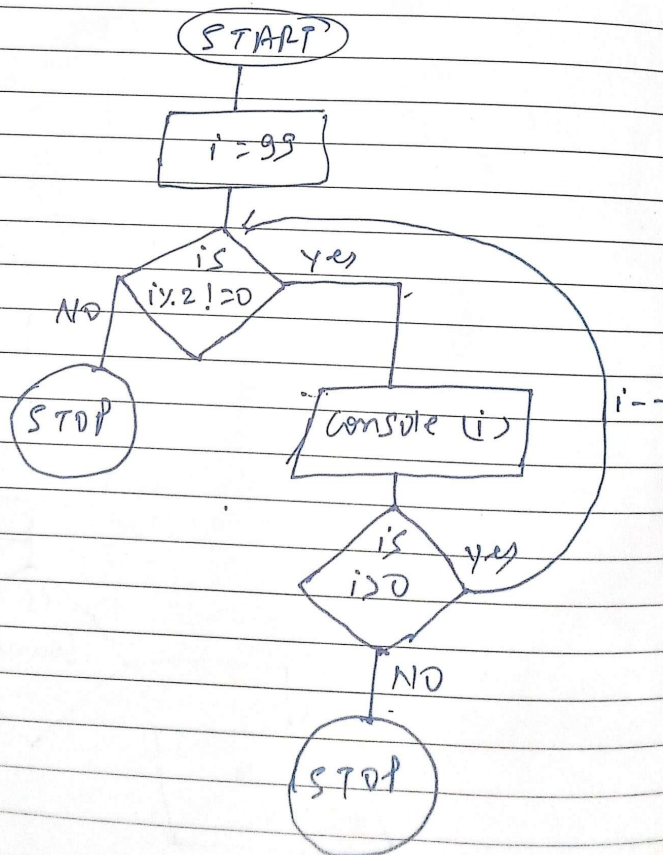 START
i = 99
is
i%2!=0
yes
NO
STOP
console (i)
i--
is
i>0
yes
NO
STOP